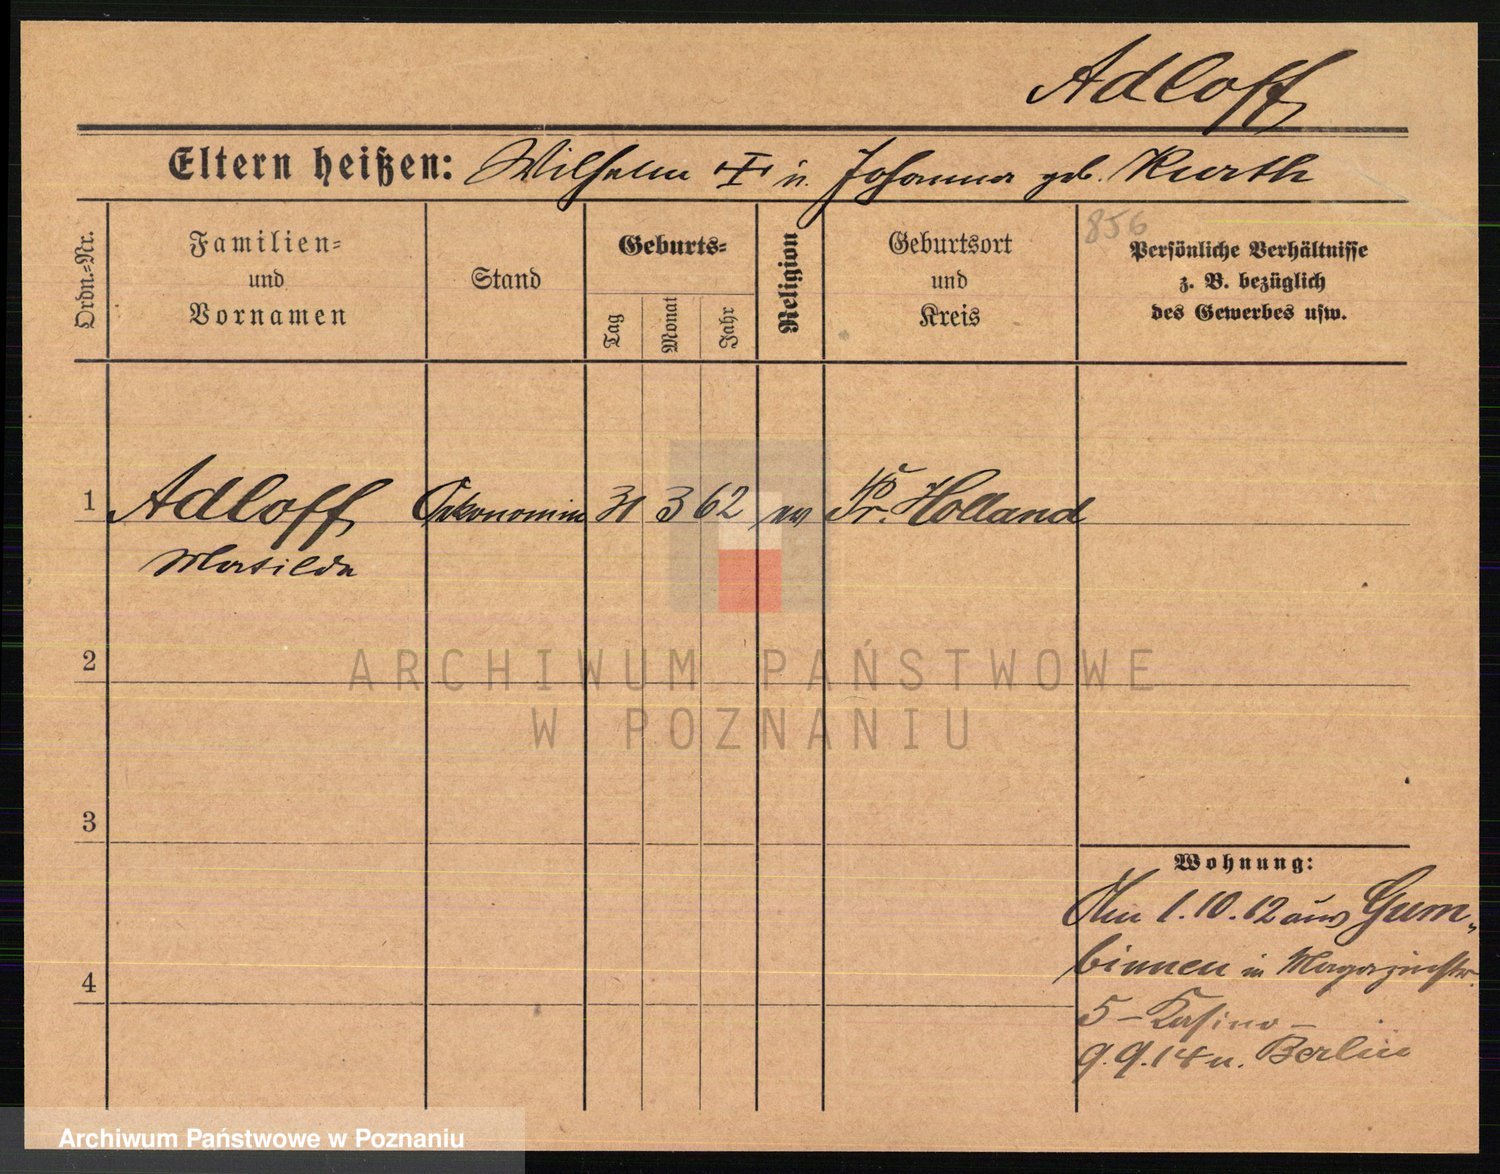 Adloff
Eltern heißen: Wilhelm † u. Johanna geb. Kurth
856
Ordn.-Nr.
Familien-
und
Vornamen
Stand
Geburts-
Tag
Monat
Jahr
Religion
Geburtsort
und
Kreis
Persönliche Verhältnisse
z. B. bezüglich
des Gewerbes usw.
1 Adloff Ökonomin 31 3 62 ev Pr. Holland
Matilda
2
3
4
Wohnung:
Am 1.10.12 aus Gum-
binnen in Magazinstr.
5 - Kasino -
9.9.14 n. Berlin
ARCHIWUM PAŃSTWOWE
W POZNANIU
Archiwum Państwowe w Poznaniu